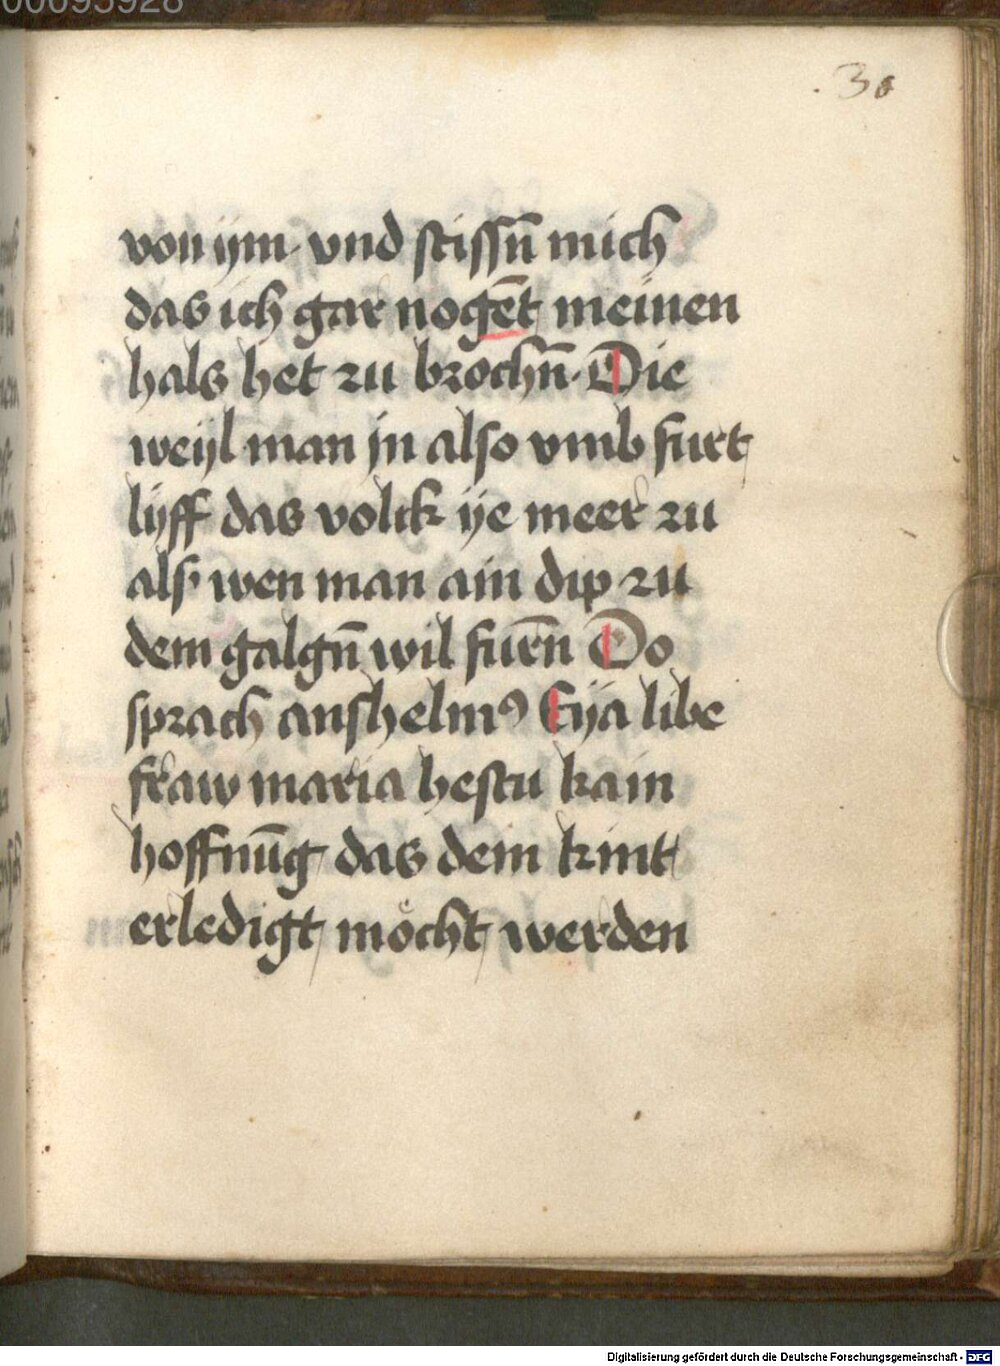 00095928
36
von ym· vnd stissn̄ mich
das ich gar nogēt meinen
hals het zu brochn̄· Die
weyl man jn also vmb furt
lyff das volck ye meer zu
als wen man ain dip zu
dem galgn̄ wil furēn Do
sprach anshelmꝰ Eya libe
fraw maria hestu kain
hoffnūg das dein kint
erledigt mo̊cht werden
Digitalisierung gefördert durch die Deutsche Forschungsgemeinschaft - DFG